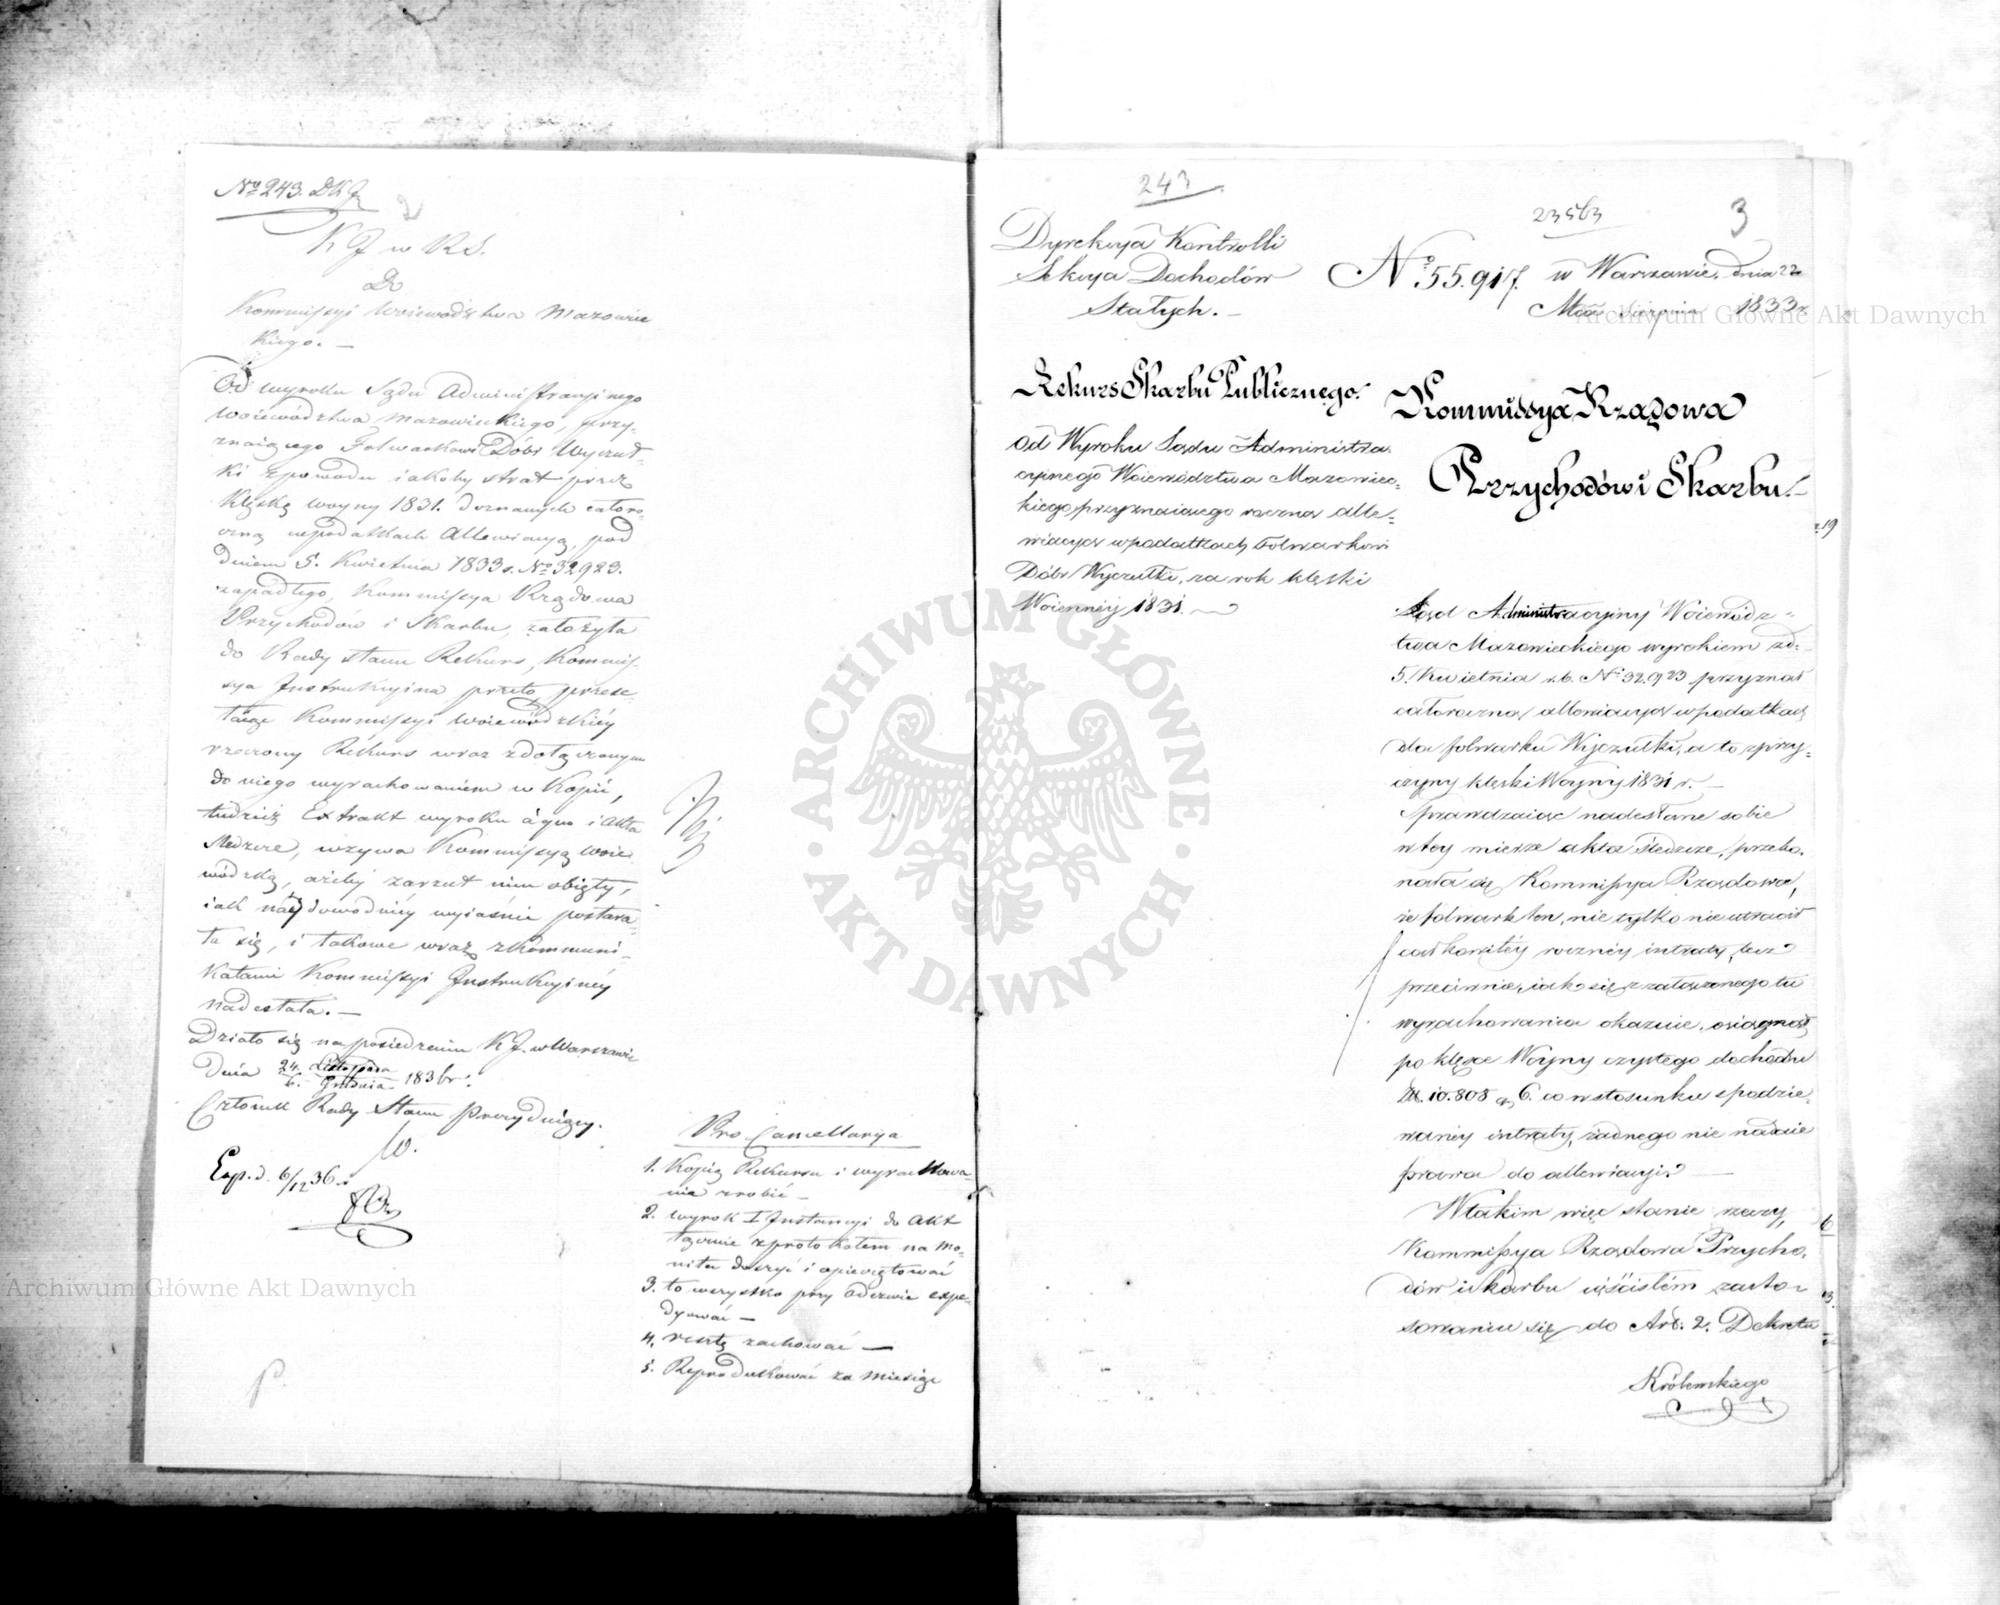 No 243. DKJ
2
K J w RS.
Do
Kommissyi Woiewództwa Mazowiec
kiego. —
Od wyroku Sądu Administracyinego
Woiewództwa Mazowieckiego, przy-
znaiącego Folwarkowi Dóbr Wyczuł-
ki zpowodu iakoby strat przez
klęskę woyny 1831. doznanych całoro-
czną wpodatkach Allewiacyą, pod
dniem 5. Kwietnia 1833 r. No 32923.
zapadłego, Kommissya Rządowa
Przychodów i Skarbu, założyła
do Rady Stanu Rekurs, Kommis-
sya Instrukcyina przeto, przese-
łaiąc Kommissyi Woiewódzkiéy
rzeczony Rekurs wraz zdołączonym
do niego wyrachowaniem w Kopii,
tudzież Extrakt wyroku à quo i akta
śledcze, wzywa Kommissyą Woie
wódzką, ażeby zarzut nim obięty,
iak naydowodniéy wyiaśnić postara-
ła się, i takowe wraz zkommuni-
katami Kommissyi Instrukcyinéy
nadesłała. —
Działo się naposiedzeniu K J. w Warszawie
dnia 24. Listopada / 6. Grudnia 1836 r.
Członek Rady Stanu Prezyduiący.
W.
Exp. d. 6/12 36.
Pro Cancellarya
1. Kopią Rekursu i wyrachowa-
nia zrobić —
2. wyrok I Instancyi do Akt
łącznie zprotokołem na mo-
nita doszyć i opieczętować
3. to wszystko przy odezwie expe-
dyować —
4. resztę zachować —
5. Reprodukować za miesiąc
243
23563
3
Dyrekcya Kontrolli
Sekcya Dochodów
Stałych. —
No 55.917. w Warszawie, dnia 22
Mca Sierpnia 1833 r.
Rekurs Skarbu Publicznego.
od Wyroku Sądu Administra-
cyinego Woiewództwa Mazowiec-
kiego przyznaiącego roczną alle-
wiacyą wpodatkach folwarkowi
Dóbr Wyczułki, za rok klęski
Woiennéy 1831.
Kommissya Rządowa
Przychodów i Skarbu.
Sąd Administracyiny Woiewódz-
twa Mazowieckiego wyrokiem zd:
5. Kwietnia r.b. No 32.923 przyznał
całoroczną allewiacyą wpodatkach
dla folwarku Wyczułki, a to zprzy-
czyny klęski Woyny 1831 r. —
Sprawdzaiąc nadesłane sobie
w tey mierze akta śledcze, przeko-
nała się Kommissya Rządowa,
że folwark ten, nie tylko nie utracił
całkowitéy roczney intraty, lecz
przeciwnie, iak się z załączonego tu
wyrachowania okazuie, osiągnął
po klęsce Woyny czystego dochodu
Zł. 10.808 gr 6. co w stosunku spodzie-
waney intraty, żadnego nie nadaie
prawa do allewiacyi. —
W takim więc stanie rzeczy,
Kommissya Rządowa Przycho-
dów i Skarbu wścisłém zasto-
sowaniu się do Art. 2. Dekretu
Królewskiego
Archiwum Główne Akt Dawnych
Archiwum Główne Akt Dawnych
ARCHIWUM GŁÓWNE · AKT DAWNYCH ·